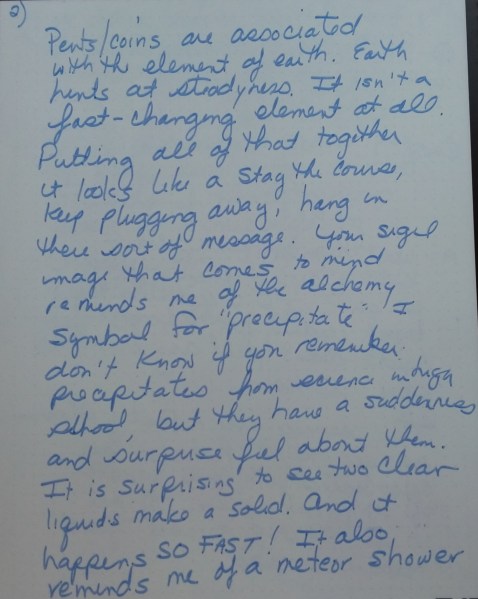 2)
Pents/coins are associated
with the element of earth. Earth
hints at steadyness. It isn't a
fast-changing element at all.
Putting all of that together
it looks like a stay the course,
keep plugging away, hang in
there sort of message. Your sigil
image that comes to mind
reminds me of the alchemy
symbol for "precipitate" I
don't know if you remember
precipitates from science in high
school, but they have a suddenness
and surprise feel about them.
It is surprising to see two clear
liquids make a solid. And it
happens SO FAST! It also
reminds me of a meteor shower